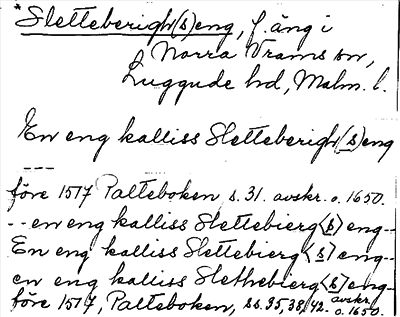 *Sletteberigh(s)eng, f. äng i
Norra Vrams sn,
Luggude hd, Malm. l.
En eng kalliss Sletteberigh(s)eng
---
före 1517 Palteboken s. 31. avskr. o. 1650.
-- en eng kalliss Slettebierg<s>eng--
En eng kalliss Slettebierg<s>eng--
en eng kalliss Slethebierg<s>eng-
före 1517, Palteboken, ss. 35, 38, 42. avskr. o. 1650.